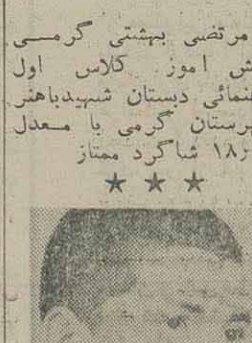 مرتضی بهشتی گرمسی
ش اموز کلاس اول
نمائی دبستان شهیدباهنر
رستان گرمی با معدل
۱۸٫ شاگرد ممتاز
★ ★ ★